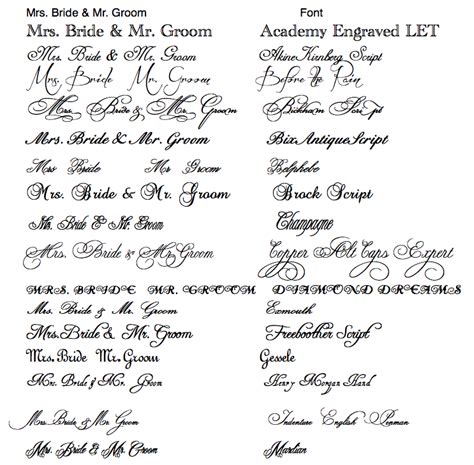 Mrs. Bride & Mr. Groom Font
Mrs. Bride & Mr. Groom Academy Engraved LET
Mrs. Bride & Mr. Groom AkineKirnberg Script
Mrs. Bride Mr. Groom Before the Rain
Mrs. Bride & Mr. Groom Bickham Script
Mrs. Bride & Mr. Groom BixAntiqueScript
Mrs Bride Mr Groom Belphebe
Mrs. Bride & Mr. Groom Brock Script
Mrs. Bride & Mr. Groom Champagne
Mrs. Bride & Mr. Groom Copper Alt Caps Expert
MRS. BRIDE MR. GROOM DIAMOND DREAMS
Mrs. Bride & Mr. Groom Exmouth
Mrs. Bride & Mr. Groom Freeboother Script
Mrs. Bride Mr. Groom Gessele
Mrs. Bride & Mr. Groom Henry Morgan Hand
Mrs. Bride & Mr. Groom Indenture English Penman
Mrs. Bride & Mr. Groom Martian